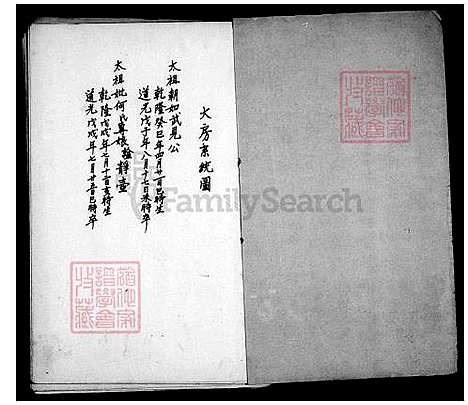 大房系統圖
太祖朝如武見公
乾隆癸巳年四月廿一日巳時生
道光戊子年八月十七日未時卒
太祖妣何氏尊娘諡靜壹
乾隆戊戌年七月十一日亥時生
道光戊戌年七月廿一日巳時卒
FamilySearch